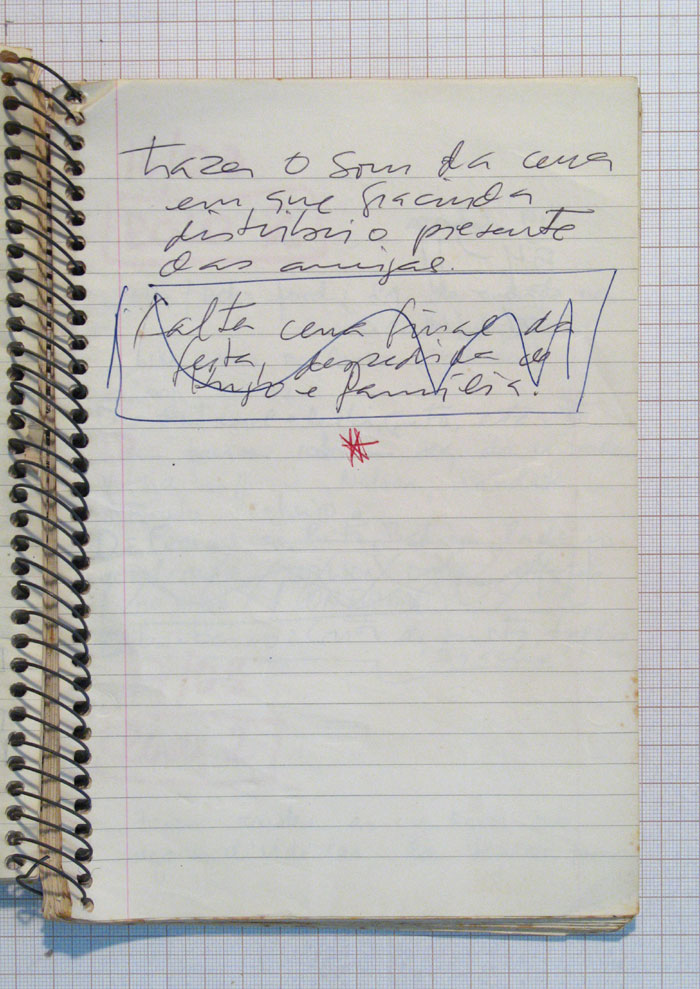 trazer o som da cena
em que Gracinda
distribui o presente
das amigas.
Falta cena final da
festa, despedida de
e família.